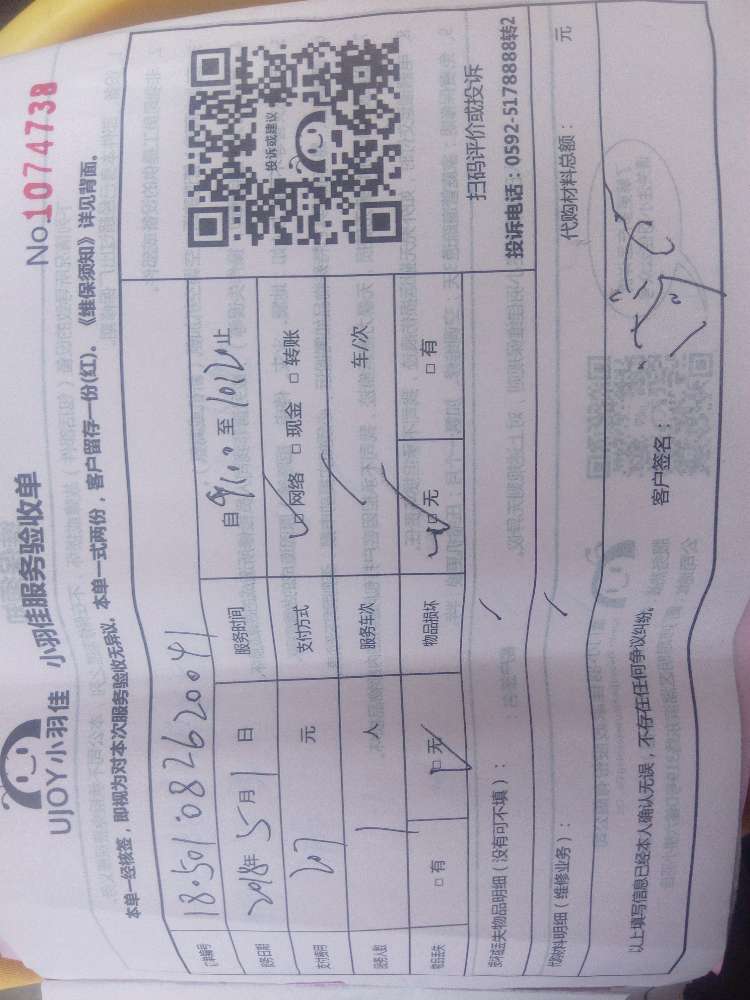 No.1074738
UJOY小羽佳 小羽佳服务验收单
本单一经核签，即视为对本次服务验收无异议。本单一式两份，客户留存一份(红)。《维保须知》详见背面。
180501082620041
2018年5月1日 服务时间 自9:00至1012止
元 支付方式 □网络 □现金 □转账
1人 服务车次 车/次
□有 □无 物品损坏 □无 □有
投诉或建议
扫码评价或投诉
投诉电话：0592-5178888转2
丢失物品明细（没有可不填）：
材料明细（维修业务）：
代购材料总额： 元
以上填写信息已经本人确认无误，不存在任何争议纠纷。
客户签名：